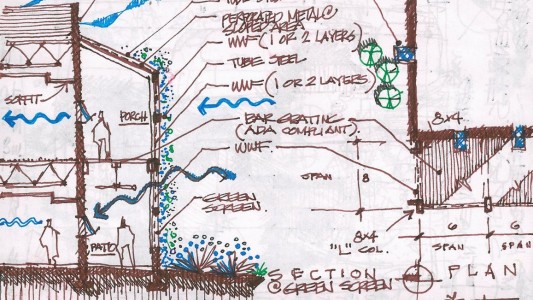 TUBE STEEL
PERFORATED METAL @
SLOPED AREA
WWF (1 OR 2 LAYERS)
TUBE STEEL
WWF (1 OR 2 LAYERS)
BAR GRATING
(ADA COMPLIANT).
WWF.
GREEN
SCREEN.
SOFFIT
PORCH
PATIO
SECTION
@ GREEN SCREEN
8x4
SPAN
8
8x4
"L" COL.
6
SPAN
6
SPAN
PLAN